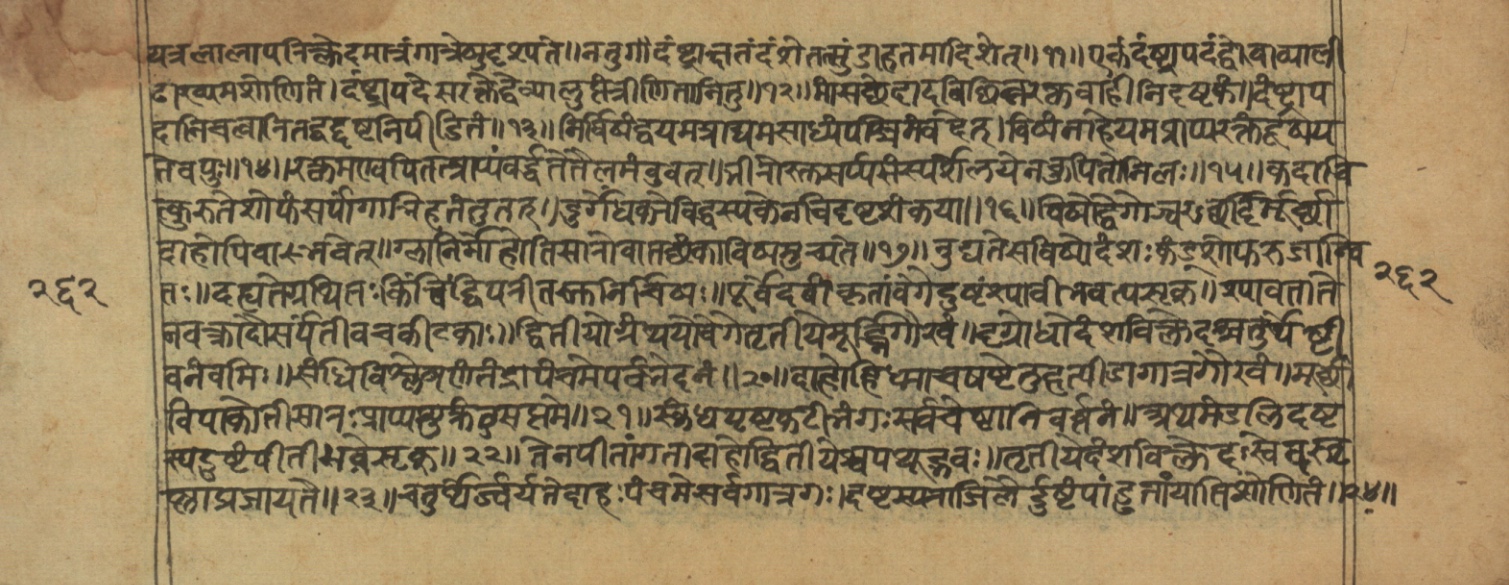 यत्रलालापनिक्लेदमात्रंगात्रेष्युदृश्पते॥ननुगौदंष्ट्राक्षतंदंशेतत्सुंडाहतमादिशेत्॥११॥एकंदंष्ट्रापदंद्वेवाव्याली
ढाख्यमशोणितं।दंष्ट्रापदेसरक्तेद्वेव्यालुप्तंत्रीणितानितु॥१२॥मांसछेदादविछिन्नरक्तवाहीनिदष्टकं॥दंष्ट्राप
दानिचत्वानितद्वद्दष्टनिपीडितं॥१३॥निर्विषंद्वयमत्राद्यमसाध्यंपश्चिमंवदेत्।विषंनाहेयमप्राप्परक्तंदूषय
तिवपुः॥१४॥रक्तमण्वपितत्प्राप्यंवर्द्धतेतैलमंबुवत्॥भीरोस्तसर्प्पसंस्पर्शाद्भयेनकुपितोनिलः॥१५॥कदाचि
त्कुरुतेशोफंसर्पांगाभिहतंतुतत्।दुर्गेंधकारेविद्वस्पकेनचिद्दष्टशंकया॥१६॥विषोद्वेगोज्वरश्छर्दिर्मूर्च्छा
दाहोपिवाभवेत्॥ग्लानिर्मोहोतिसारोवातछंकाविषमुच्यते॥१७॥तुद्यतेसविषोदंशःकंडूशोफरुजान्वि
२६२ २६२
तः॥दह्यतेग्रथितःकिंचिद्विपरीतस्तुनिर्विषः॥पूर्वेदर्वीकृतांवेगेदुष्टंश्पावीभवत्पसृक्॥श्पावताते
नवक्त्रादौसर्पंतीवचकीटकाः॥द्वितीयेग्रंथयोवेगेतृतीयेमूर्द्ध्निगौरवं॥दृग्रोधोदंशविक्लेदश्चतुर्थेष्टी
वनंवमिः॥संधिविश्लेषणंतंद्रापंचमेपर्वभेदनं॥२०॥दाहोहिध्माचषष्ठेतुहृत्पीडागात्रगौरवं॥मूर्छा
विपाकोतीसारःप्राप्पशुक्रंतुसप्तमे॥२१॥स्कंधपृष्टकटीभंगःसर्वचेष्टानिवर्त्तनं॥अथमंडलिदष्ट
स्पदुष्टंपीतीभवेत्सृक्॥२२॥तेनपीतांगतादाहोद्वितीयेश्वपथूद्भवः॥तृतीयेदंशविक्लेदःस्वेदस्तृ
स्नाप्रजायते॥२३॥चतुर्थेर्ज्वर्यतेदाहःपंचमेसर्वगात्रगः।दष्टस्पराजिलैर्द्दुष्टंपांडुतांयातिशोणितं॥२४॥